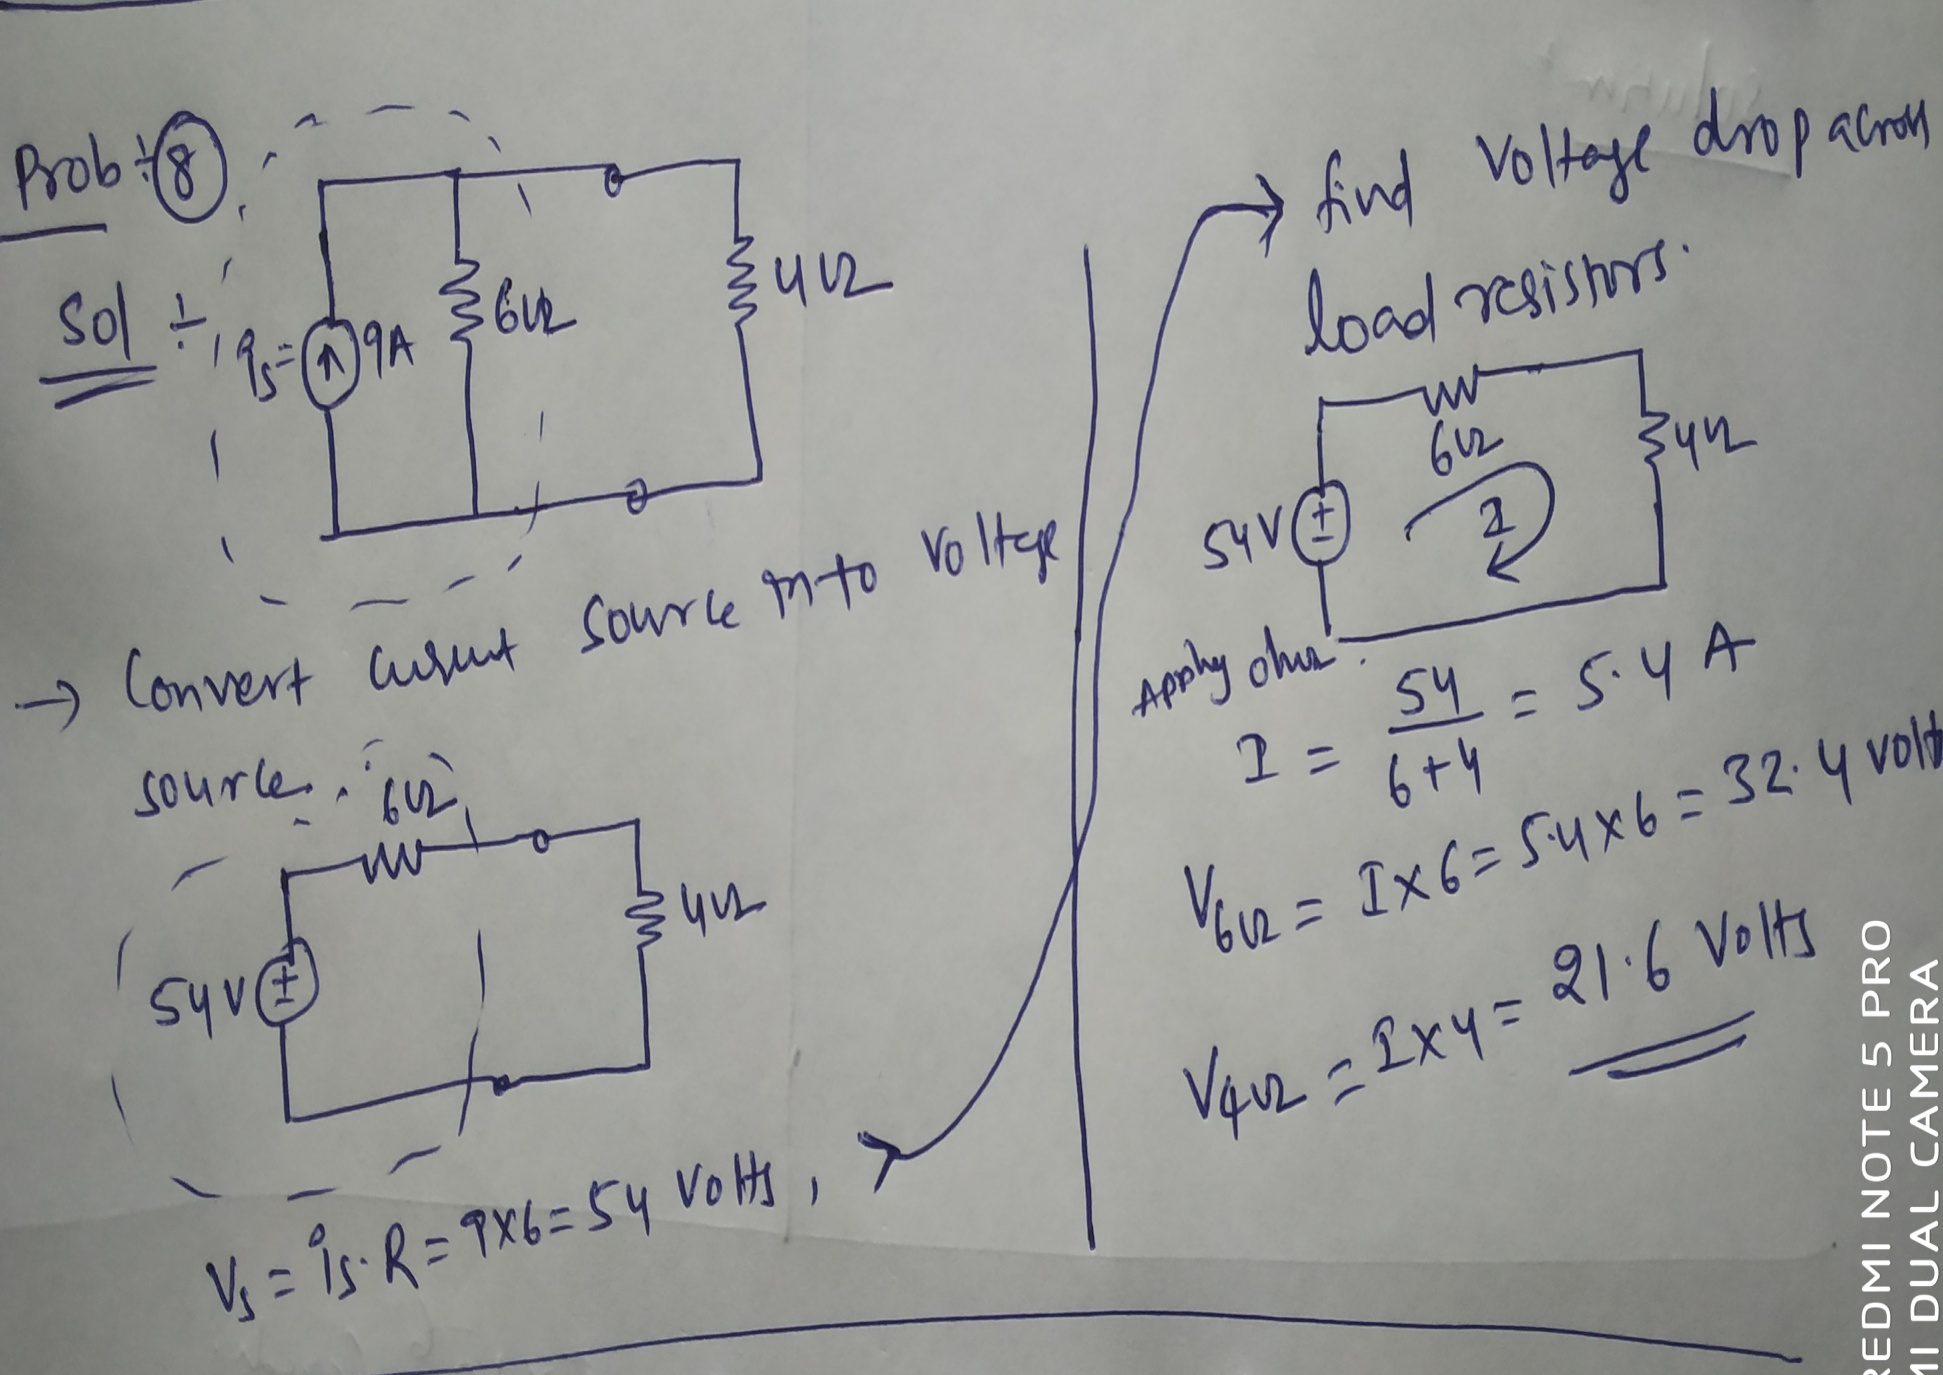 Prob ÷ 8
Sol ÷
is = 9A
6Ω
4Ω
→ Convert current source into voltage
source.
6Ω
54V
4Ω
Vs = is·R = 9×6 = 54 Volts,
→ find Voltage drop across
load resistors.
6Ω
4Ω
54V
I
Apply ohm
I = 54/6+4 = 5.4 A
V6Ω = I×6 = 5.4×6 = 32.4 volt
V4Ω = I×4 = 21.6 Volts
REDMI NOTE 5 PRO
MI DUAL CAMERA